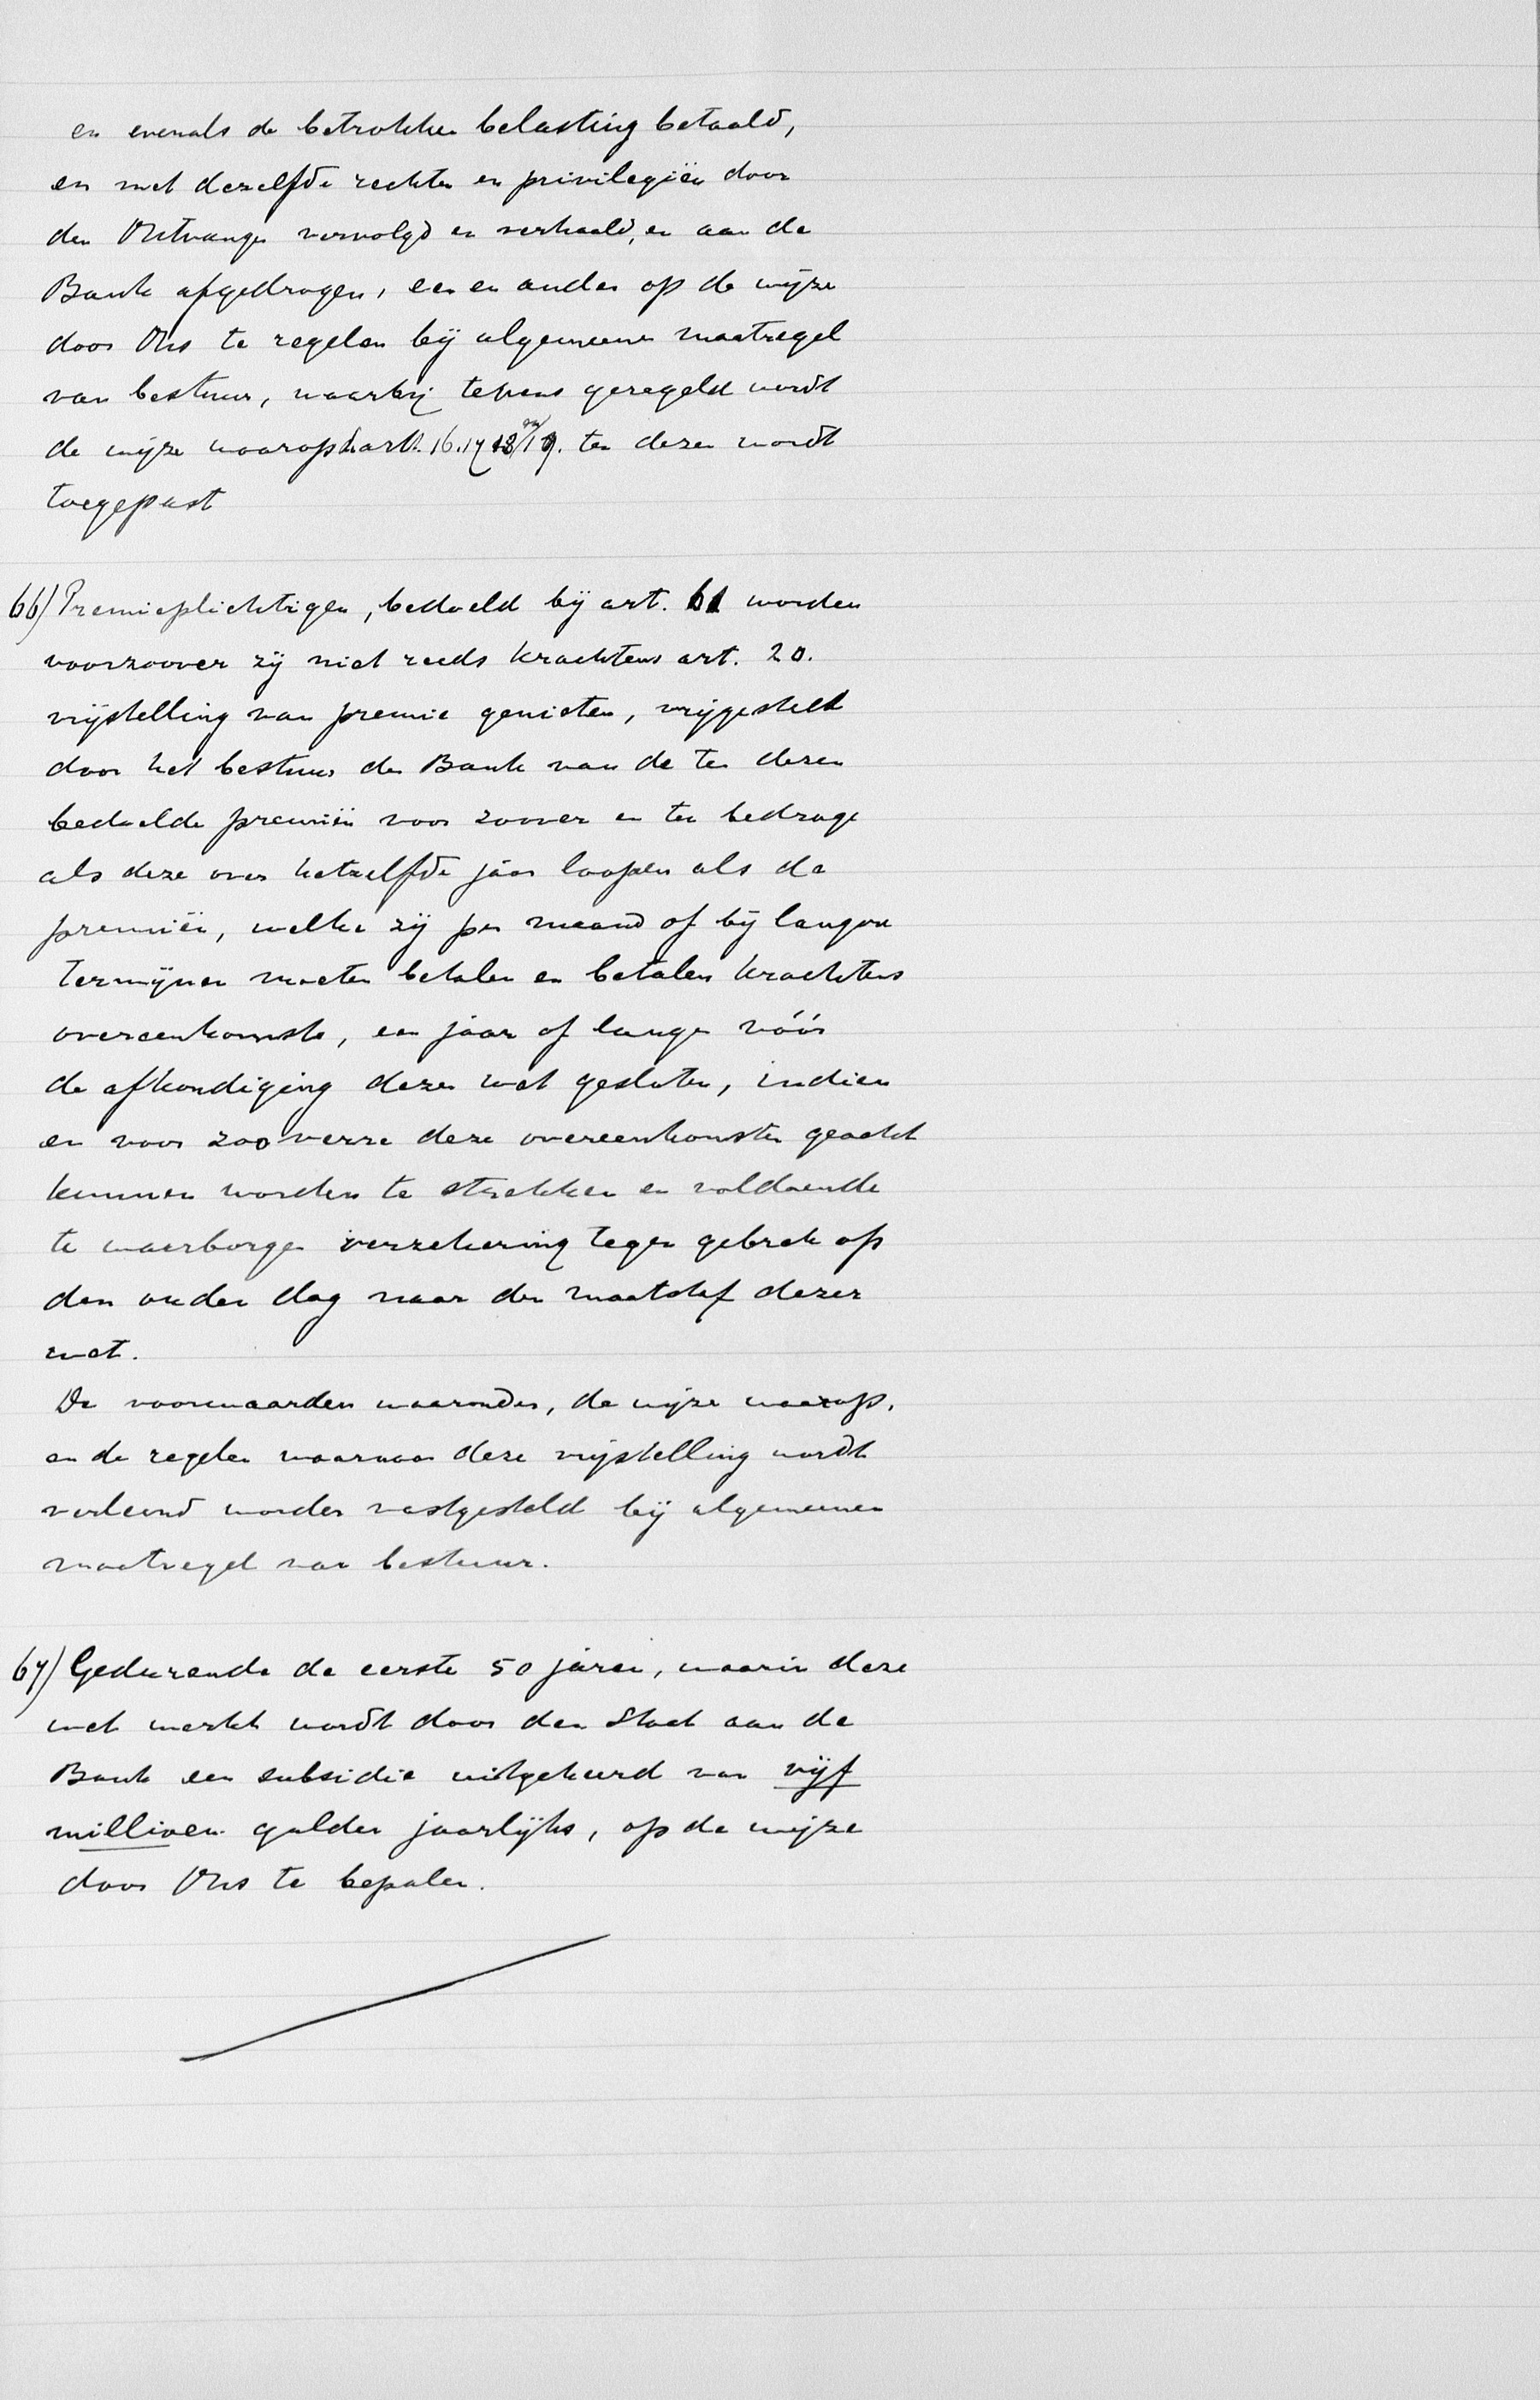 en evenals de betrokken belasting betaald,
en met dezelfde rechten en privilegiën door
den Ontvanger vervolgd en verhaald, en aan de
Bank afgedragen, een en ander op de wijze
door Ons te regelen bij algemeene maatregel
van bestuur, waarbij tevens geregeld wordt
de wijze waarop art. 16. 17 18 en 19. ten dezen wordt
toegepast
66) Premieplichtigen, bedoeld bij art. 61 worden
voorzoover zij niet reeds krachtens art. 20.
vrijstelling van premie genieten, vrijgesteld
door het bestuur der Bank van de ten dezen
bedoelde premiën voor zoover en ten bedrage
als deze over hetzelfde jaar loopen als de
premiën, welke zij per maand of bij langere
termijnen moeten betalen en betalen krachtens
overeenkomsten, een jaar of langer vóór
de afkondiging dezer wet gesloten, indien
en voor zoo verre deze overeenkomsten geacht
kunnen worden te strekken en voldoende
te waarborgen verzekering tegen gebrek op
den ouden dag naar den maatstaf dezer
wet.
De voorwaarden waaronder, de wijze waarop,
en de regelen waarnaar deze vrijstelling wordt
verleend worden vastgesteld bij algemeenen
maatregel van bestuur.
67) Gedurende de eerste 50 jaren, waarin deze
wet werkt wordt door den Staat aan de
Bank een subsidie uitgekeerd van vijf
millioen gulden jaarlijks, op de wijze
door Ons te bepalen.